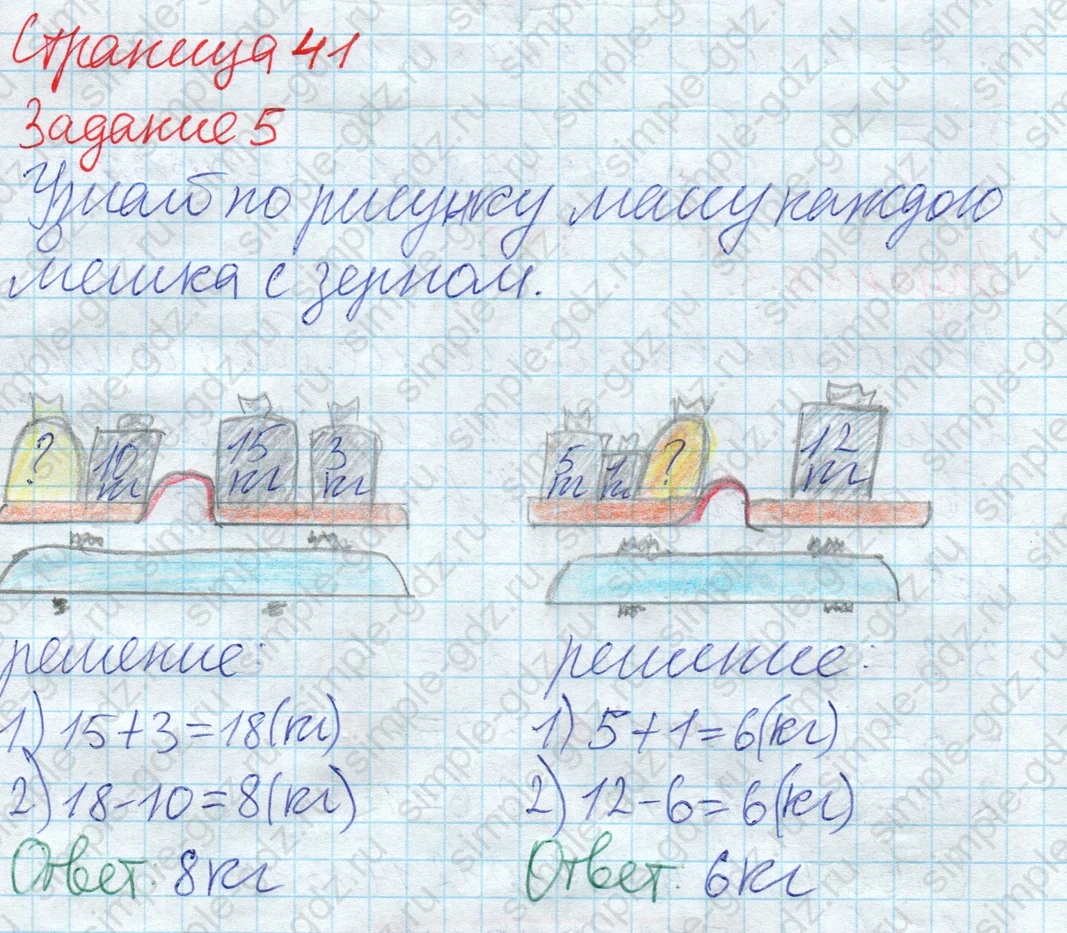 Страница 41
Задание 5
Узнай по рисунку массу каждого
мешка с зерном.
? 10 кг 15 кг 3 кг
5 кг 1 кг ? 12 кг
решение:
1) 15+3=18(кг)
2) 18-10=8(кг)
Ответ: 8кг
решение:
1) 5+1=6(кг)
2) 12-6=6(кг)
Ответ: 6кг
simple-gdz.ru